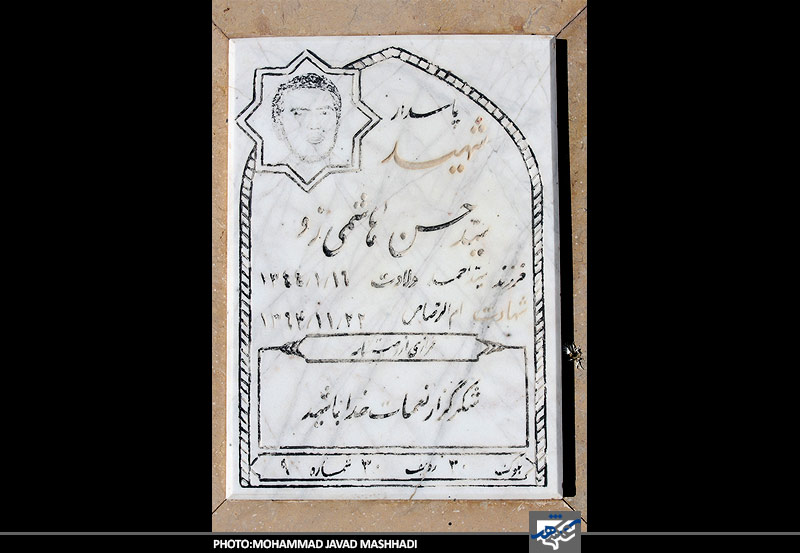 پاسدار
شهید
سید حسن هاشمی نژاد
فرزند سیداحمد ولادت ۱۳۴۴/۱/۱۶
شهادت ام الرصاص ۱۳۶۴/۱۱/۲۲
فرازی از وصیت نامه
شکرگزار نعمات خدا باشید
بلوک ۳۰ ردیف ۳۰ شماره ۹
PHOTO:MOHAMMAD JAVAD MASHHADI